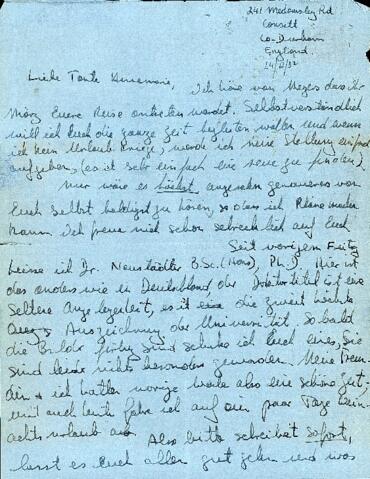 241 Medomsley Rd
Consett
Co-Durham
England
Liebe Tante Annemarie,
Ich höre von Mezes dass ihr
März Euere Reise antreten werdet. Selbstverständlich
will ich Euch die ganze Zeit begleiten wollen und wenn
ich kein Urlaub kriege, werde ich meine Stellung einfach
aufgeben, (es ist sehr einfach eine neue zu finden)
Nur wäre es höchst angenehm genaueres von
Euch selbst baldigst zu hören, so dass ich Pläne machen
kann. Ich freue mich schon schrecklich auf Euch.
Seit vorigem Freitag
heisse ich Dr. Neustädter B.Sc. (Hons), Ph.D. Hier ist
das anders wie in Deutschland der Doktortitel ist eine
seltene Angelegenheit, es ist die zweit höchste
Auszeichnung der Universität. So bald
die Bilder fertig sind schicke ich Euch eines, Sie
sind leider nichts besonders geworden. Meine Freun-
din & ich hatten vorige Woche also eine schöne Zeit,
und auch heute fahre ich auf ein paar Tage Wein-
achtsurlaub ab. Also bitte schreibet sofort,
lasst es Euch allen gut gehn und was